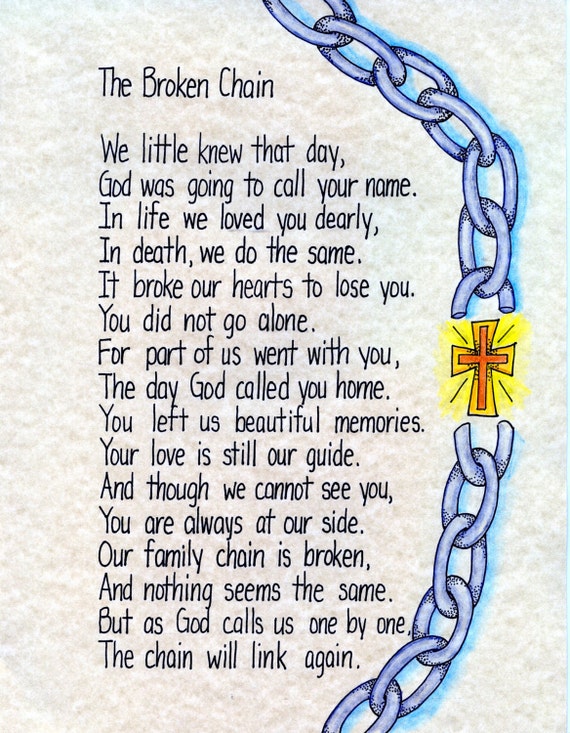 The Broken Chain
We little knew that day,
God was going to call your name.
In life we loved you dearly,
In death, we do the same.
It broke our hearts to lose you.
You did not go alone.
For part of us went with you,
The day God called you home.
You left us beautiful memories.
Your love is still our guide.
And though we cannot see you,
You are always at our side.
Our family chain is broken,
And nothing seems the same.
But as God calls us one by one,
The chain will link again.